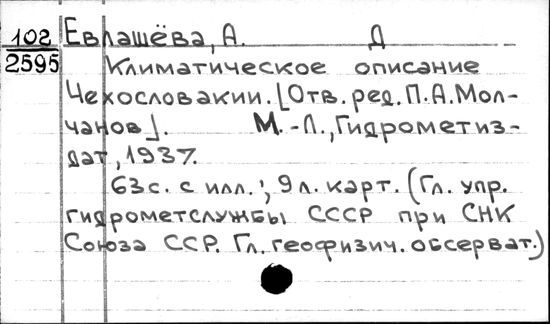 102 Евлашёва, А. Д
2595 Климатическое описание
Чехословакии. [Отв. ред. П.А. Мол-
чанов]. М.-Л., Гидрометиз-
дат, 1937.
63 с. с илл.; 9 л. карт. (Гл. упр.
гидрометслужбы СССР при СНК
Союза ССР. Гл. геофизич. обсерват.)